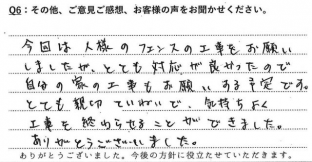 Q6：その他、ご意見ご感想、お客様の声をお聞かせください。
今回は人様のフェンスの工事をお願い
しましたが、とても対応が良かったので
自分の家の工事もお願いする予定です。
とても親切ていねいで、気持ちよく
工事を終わらせることができました。
ありがとうございました。
ありがとうございました。今後の方針に役立たせていただきます。